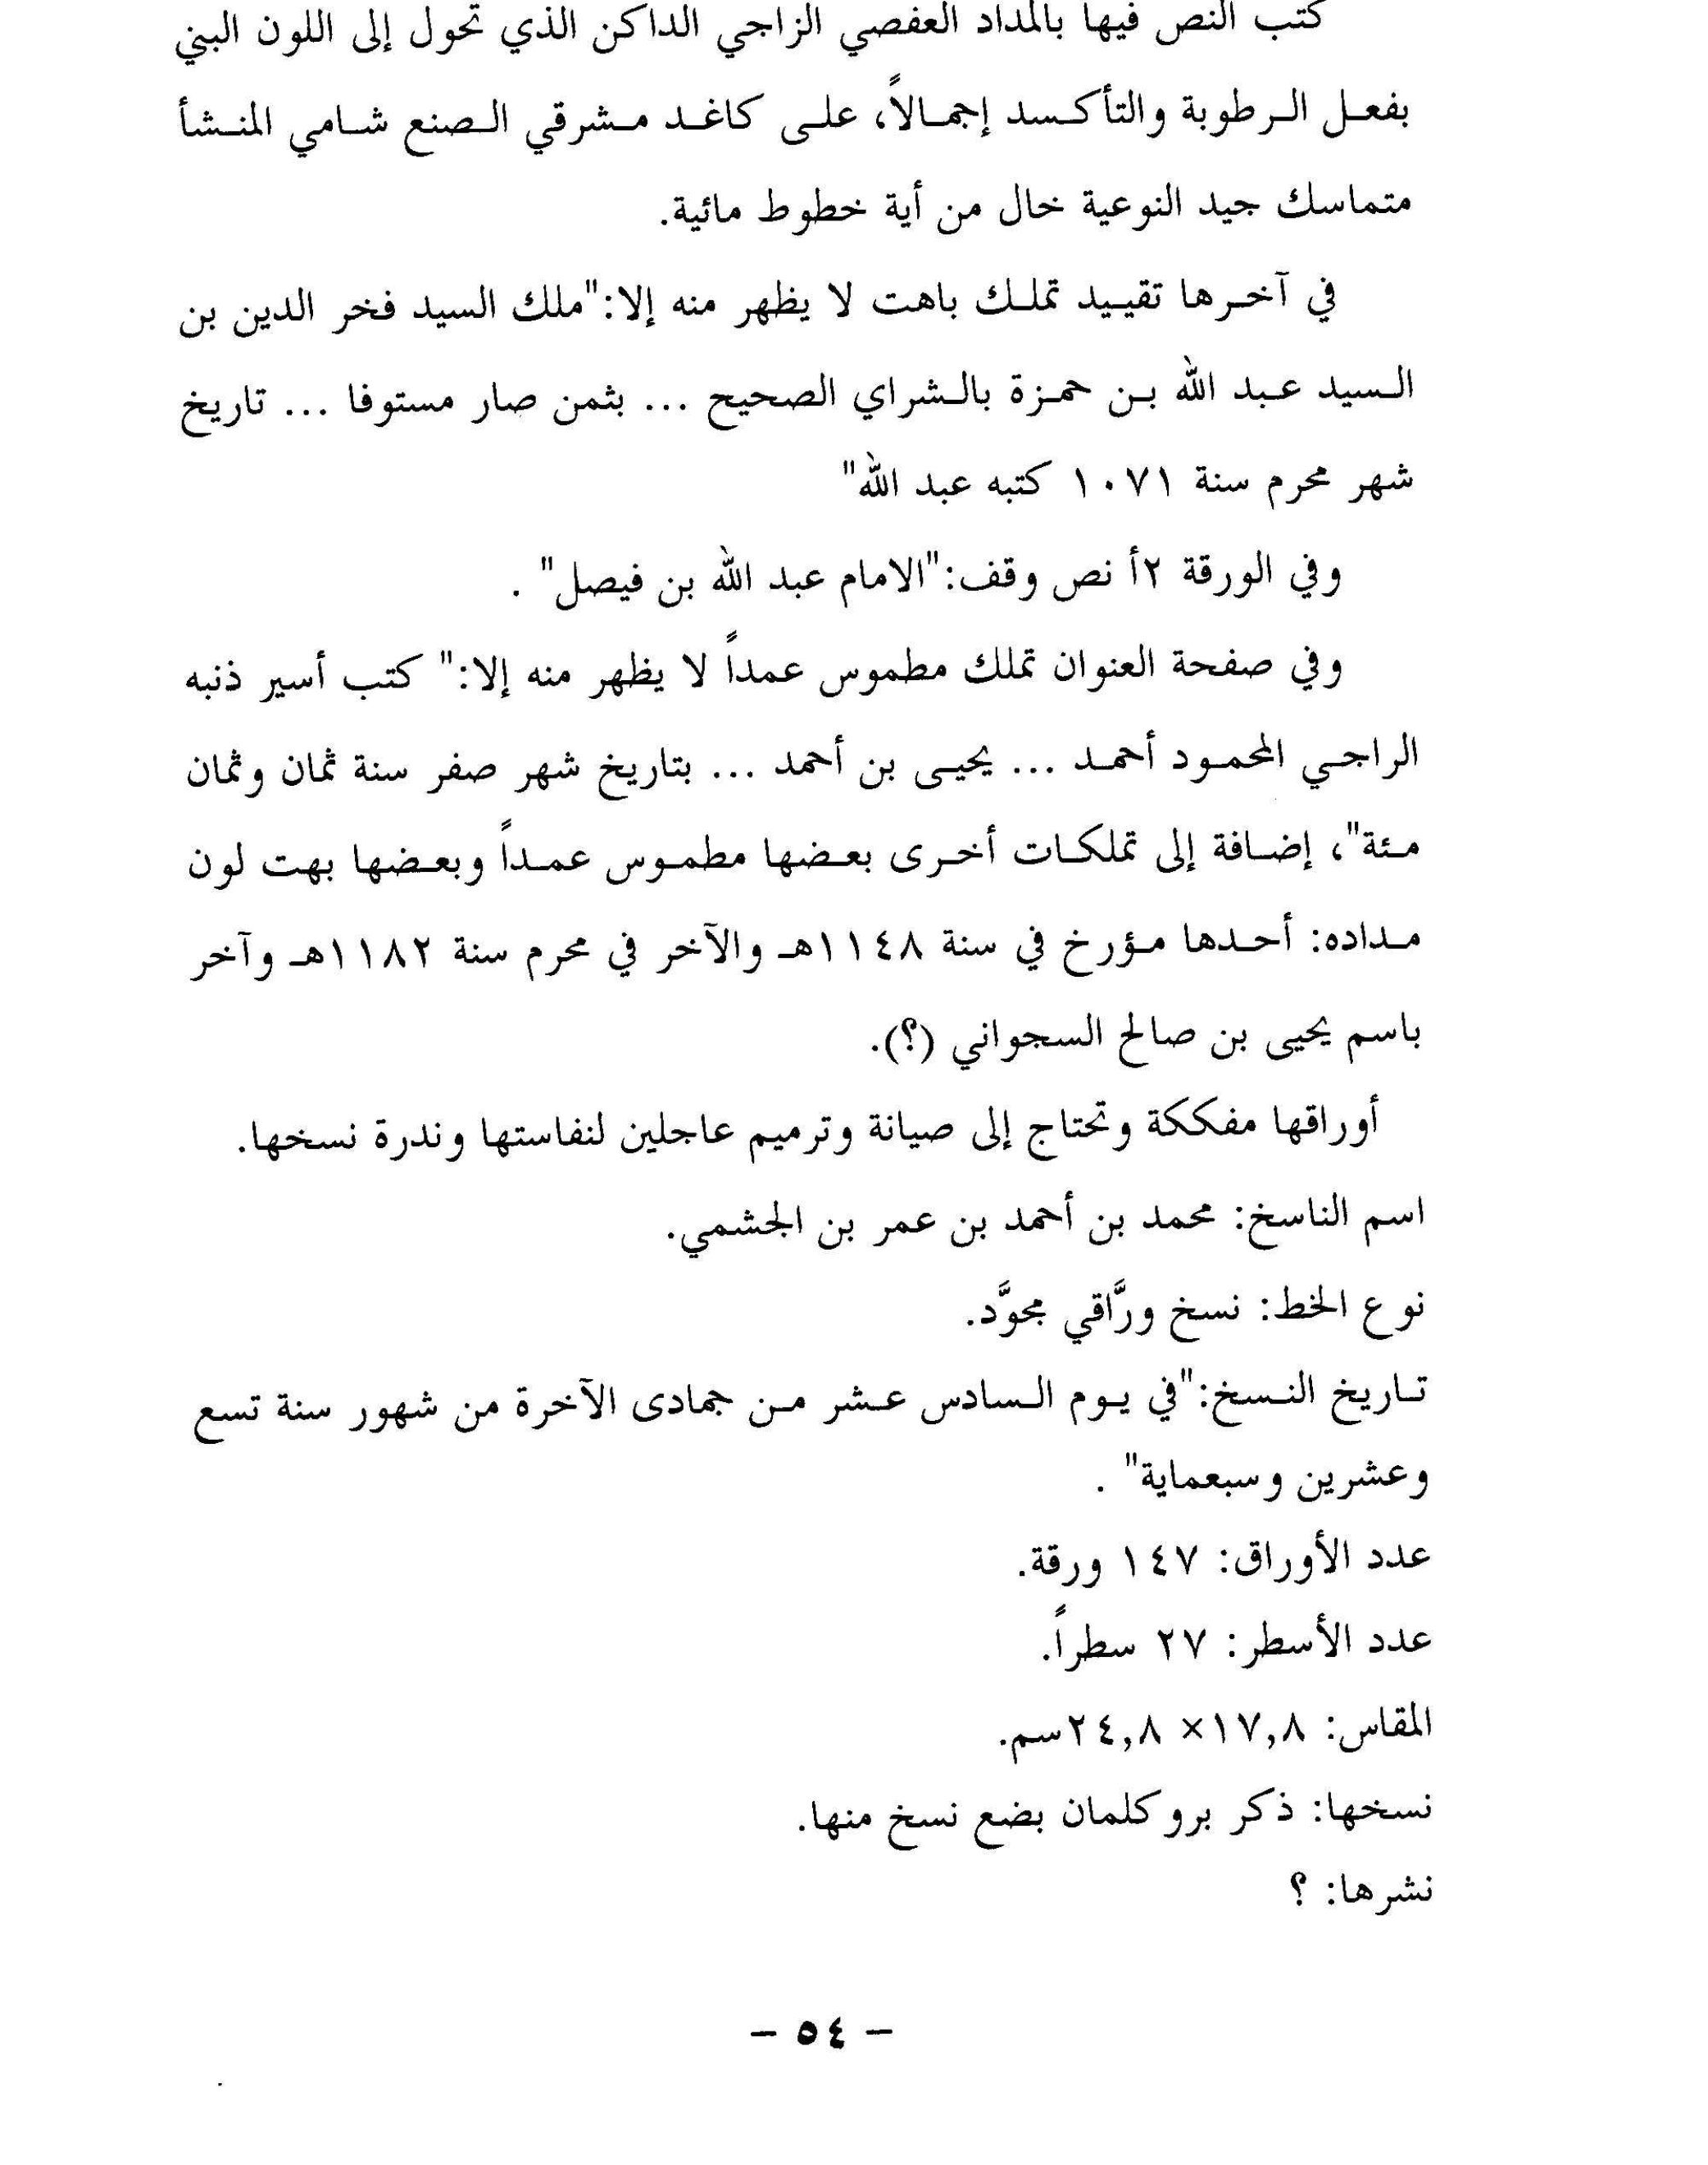 كتب النص فيها بالمداد العفصي الزاجي الداكن الذي تحول إلى اللون البني
بفعل الرطوبة والتأكسد إجمالاً، على كاغد مشرقي الصنع شامي المنشأ
متماسك جيد النوعية خال من أية خطوط مائية.
في آخرها تقييد تملك باهت لا يظهر منه إلا:"ملك السيد فخر الدين بن
السيد عبد الله بن حمزة بالشراي الصحيح ... بثمن صار مستوفا ... تاريخ
شهر محرم سنة ١٠٧١ كتبه عبد الله"
وفي الورقة ٢أ نص وقف:"الامام عبد الله بن فيصل" .
وفي صفحة العنوان تملك مطموس عمداً لا يظهر منه إلا:" كتب أسير ذنبه
الراجي المحمود أحمد ... يحيى بن أحمد ... بتاريخ شهر صفر سنة ثمان وثمان
مئة"، إضافة إلى تملكات أخرى بعضها مطموس عمداً وبعضها بهت لون
مداده: أحدها مؤرخ في سنة ١١٤٨هـ والآخر في محرم سنة ١١٨٢هـ وآخر
باسم يحيى بن صالح السجواني (؟).
أوراقها مفككة وتحتاج إلى صيانة وترميم عاجلين لنفاستها وندرة نسخها.
اسم الناسخ: محمد بن أحمد بن عمر بن الجشمي.
نوع الخط: نسخ ورَّاقي مجوَّد.
تاريخ النسخ:"في يوم السادس عشر من جمادى الآخرة من شهور سنة تسع
وعشرين وسبعماية" .
عدد الأوراق: ١٤٧ ورقة.
عدد الأسطر: ٢٧ سطراً.
المقاس: ١٧,٨× ٢٤,٨سم.
نسخها: ذكر بروكلمان بضع نسخ منها.
نشرها: ؟
- ٥٤ -